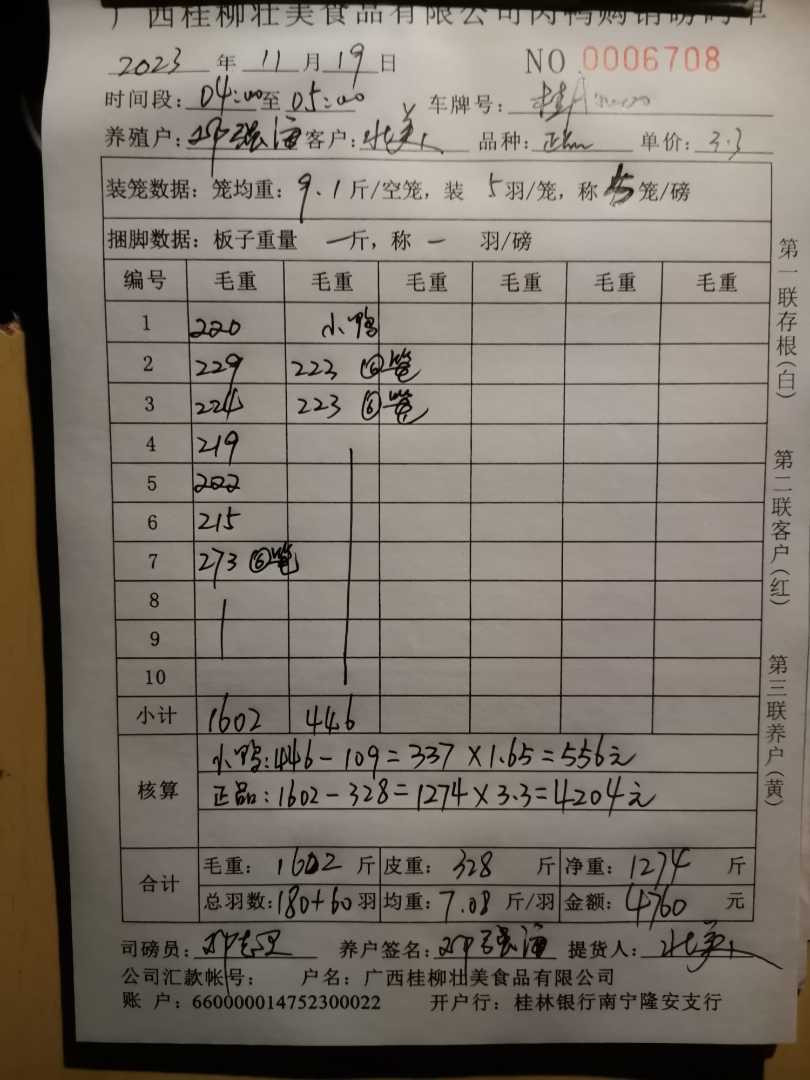 广西桂柳壮美食品有限公司肉鸭购销磅码单
2023年 11月19日 NO 0006708
时间段:04:00至05:00 车牌号:桂A
养殖户: 客户: 品种: 单价:3.3
装笼数据:笼均重:9.1斤/空笼,装 5羽/笼,称 笼/磅
捆脚数据:板子重量 一斤,称 一 羽/磅
编号 毛重 毛重 毛重 毛重 毛重 毛重
1 220 小鸭
2 229 223 ⑥笼
3 224 223 ⑥笼
4 219
5 222
6 215
7 273 ⑥笼
8
9
10
小计 1602 446
核算
小鸭:446-109=337×1.65=556元
正品:1602-328=1274×3.3=4204元
合计
毛重:1602斤 皮重:328斤 净重:1274斤
总羽数:180+60羽 均重:7.08斤/羽 金额:4760元
司磅员: 养户签名: 提货人:
公司汇款帐号: 户名:广西桂柳壮美食品有限公司
账 户:660000014752300022 开户行:桂林银行南宁隆安支行
第一联存根(白)
第二联客户(红)
第三联养户(黄)